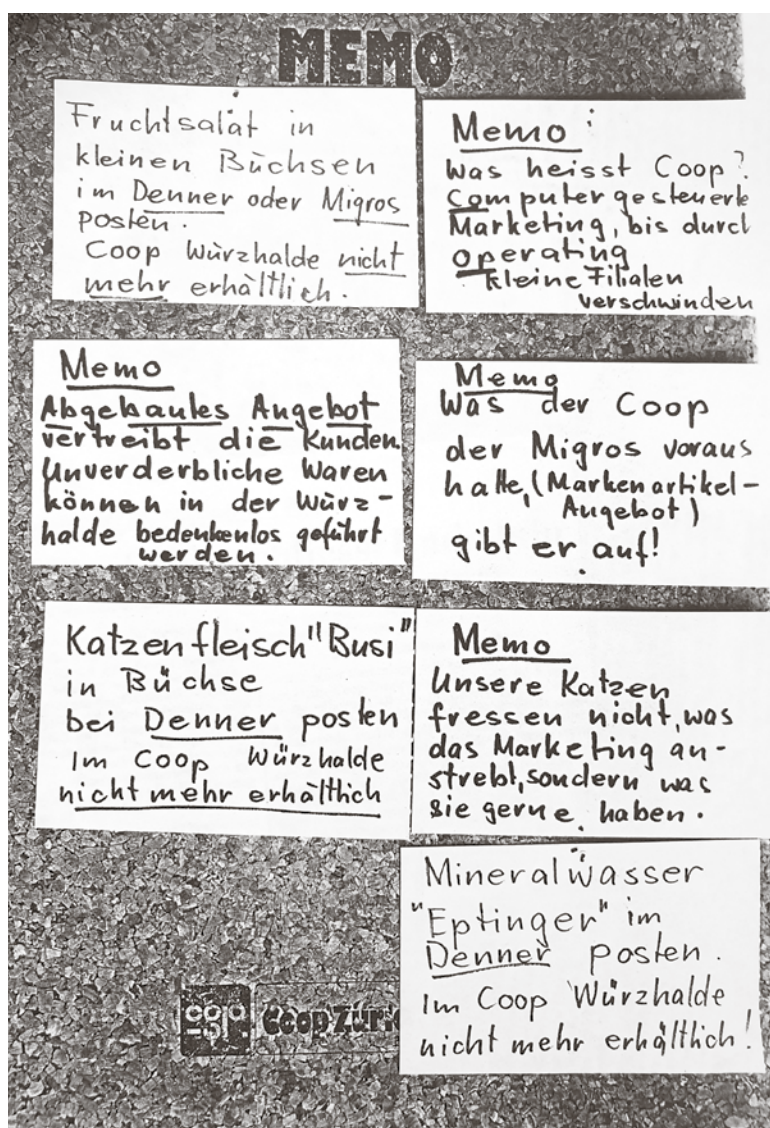 MEMO
Fruchtsalat in
kleinen Büchsen
im Denner oder Migros
posten.
Coop Würzhalde nicht
mehr erhältlich.
Memo:
Was heisst Coop?
Computergesteuerte
Marketing, bis durch
operating
kleine Filialen
verschwinden
Memo
Abgebautes Angebot
vertreibt die Kunden.
Unverderbliche Waren
können in der Würz-
halde bedenkenlos geführt
werden.
Memo
Was der Coop
der Migros voraus
hatte, (Markenartikel-
Angebot)
gibt er auf!
Katzenfleisch "Busi"
in Büchse
bei Denner posten
Im Coop Würzhalde
nicht mehr erhältlich
Memo
Unsere Katzen
fressen nicht, was
das Marketing an-
strebt, sondern was
sie gerne haben.
Mineralwasser
"Eptinger" im
Denner posten.
Im Coop Würzhalde
nicht mehr erhältlich!
coop Coop Züri